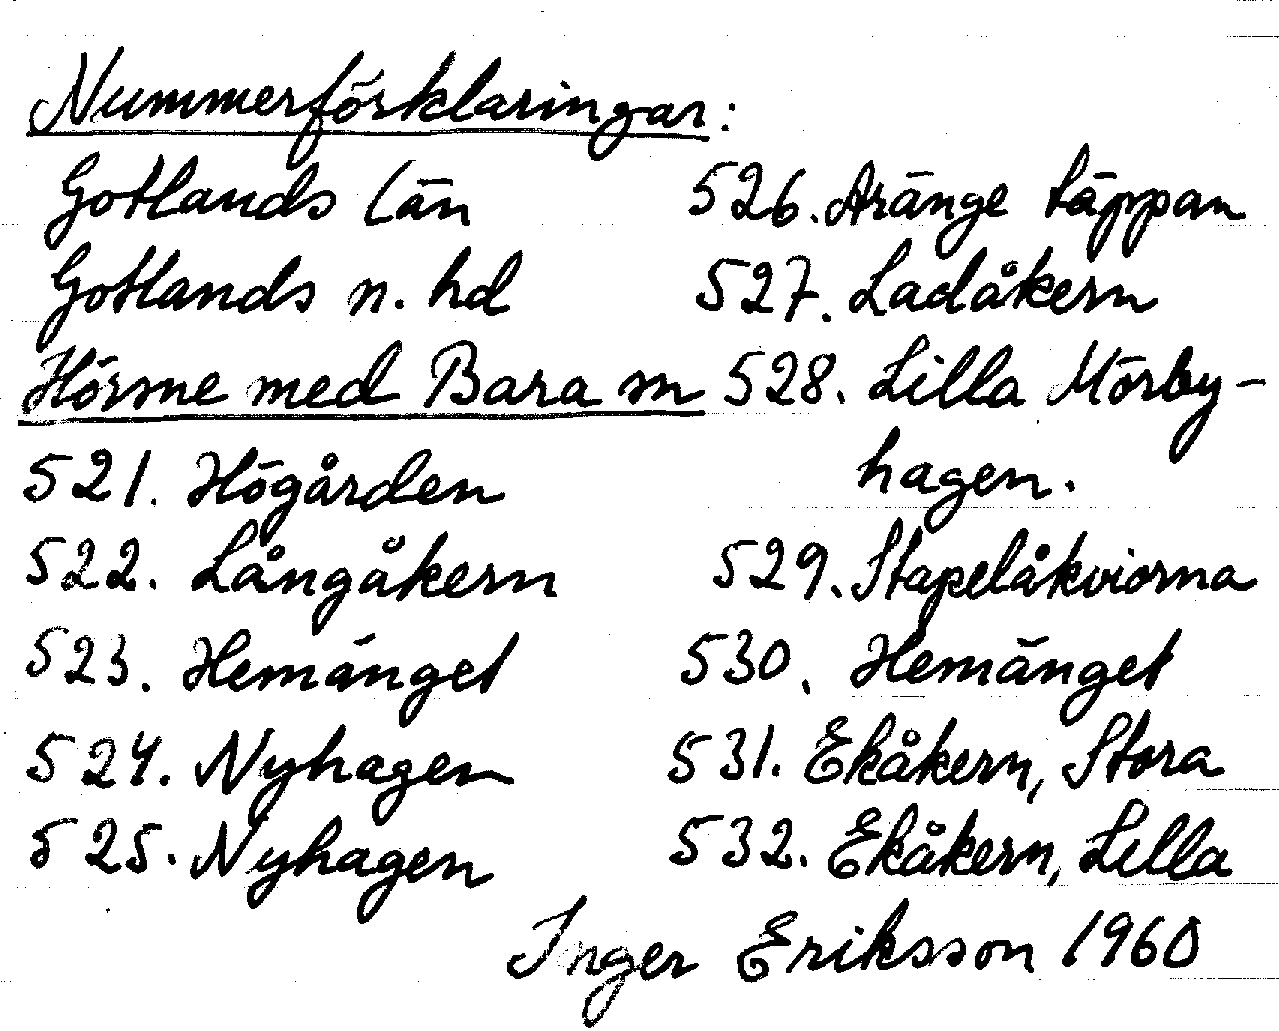 Nummerförklaringar:
Gotlands län
Gotlands n. hd
Hörsne med Bara sn
521. Högården
522. Långåkern
523. Hemänget
524. Nyhagen
525. Nyhagen
526. Aränge täppan
527. Ladåkern
528. Lilla Mörby-
hagen.
529. Stapelåkviorna
530. Hemänget
531. Ekåkern, Stora
532. Ekåkern, Lilla
Inger Eriksson 1960